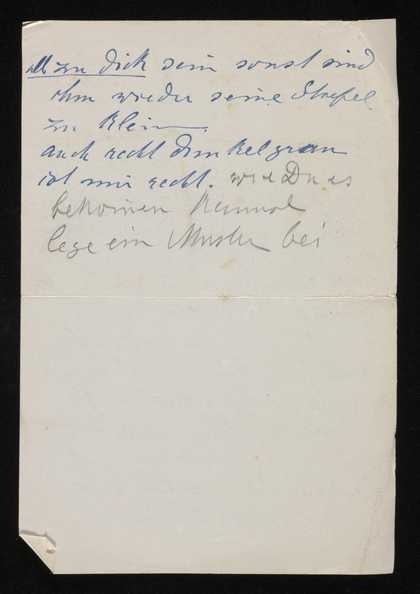 all zu dick sein sonst sind
ihm wieder seine Stiefel
zu klein.
auch recht dunkelgrau
ist mir recht. wie Du es
bekommen kannst
lege ein Muster bei